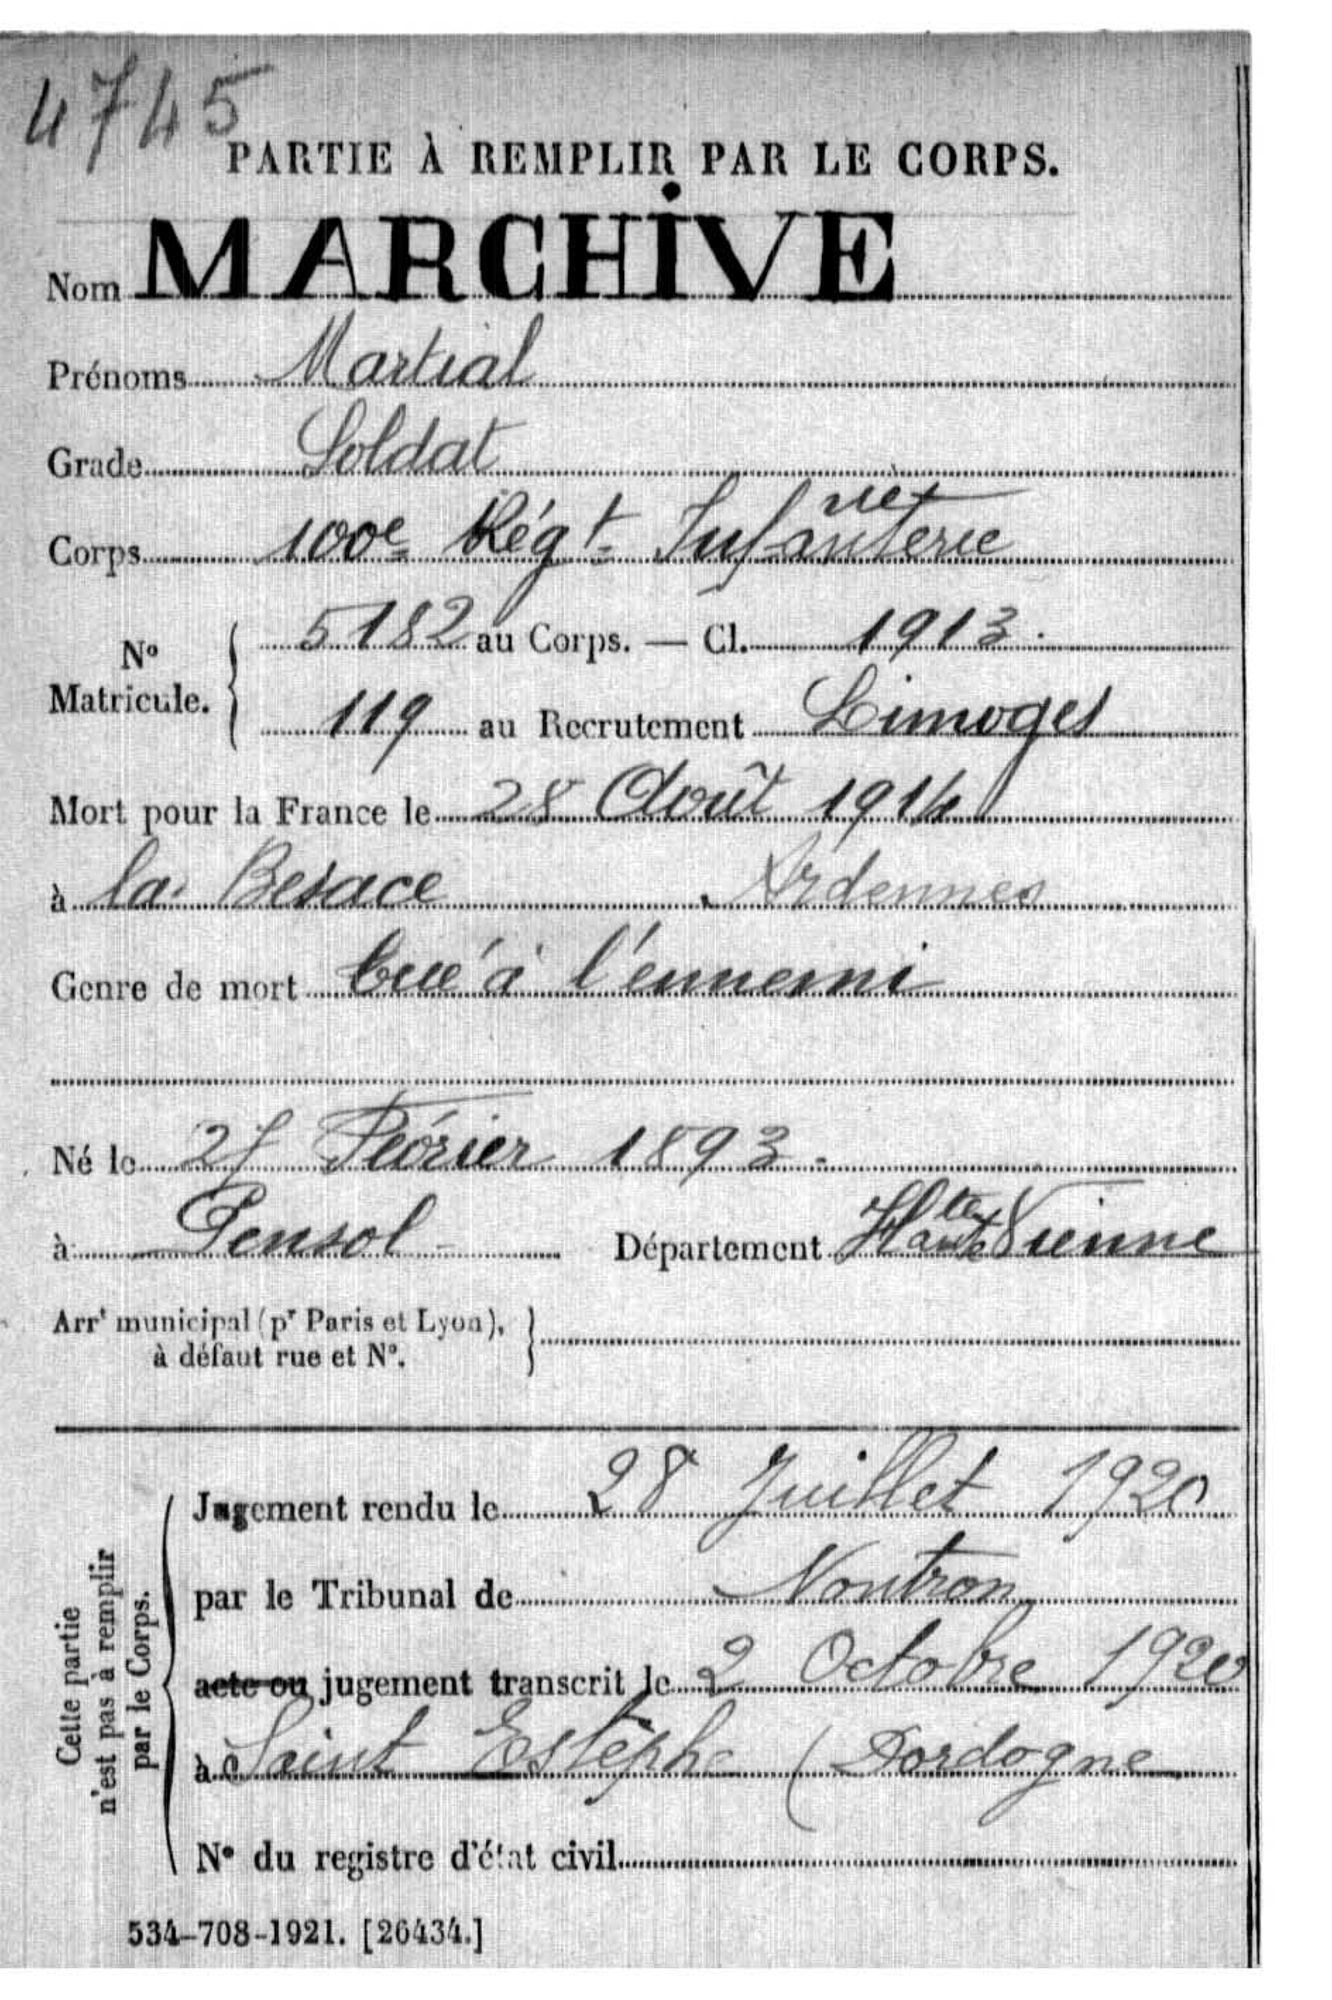 4745
PARTIE À REMPLIR PAR LE CORPS.
Nom MARCHIVE
Prénoms Martial
Grade Soldat
Corps 100e Régt Infanterie
No Matricule. { 5182 au Corps. — Cl. 1913.
119 au Recrutement Limoges
Mort pour la France le 28 Août 1914
à la Besace Ardennes
Genre de mort tué à l'ennemi
Né le Février 1893.
à Pensol Département Hte Vienne
Arrt municipal (pr Paris et Lyon), }
à défaut rue et No.
Cette partie
n'est pas à remplir
par le Corps.
Jugement rendu le 28 Juillet 1920
par le Tribunal de Nontron
acte ou jugement transcrit le 2 Octobre 1920
à Saint Estèphe (Dordogne
No du registre d'état civil
534-708-1921. [26434.]